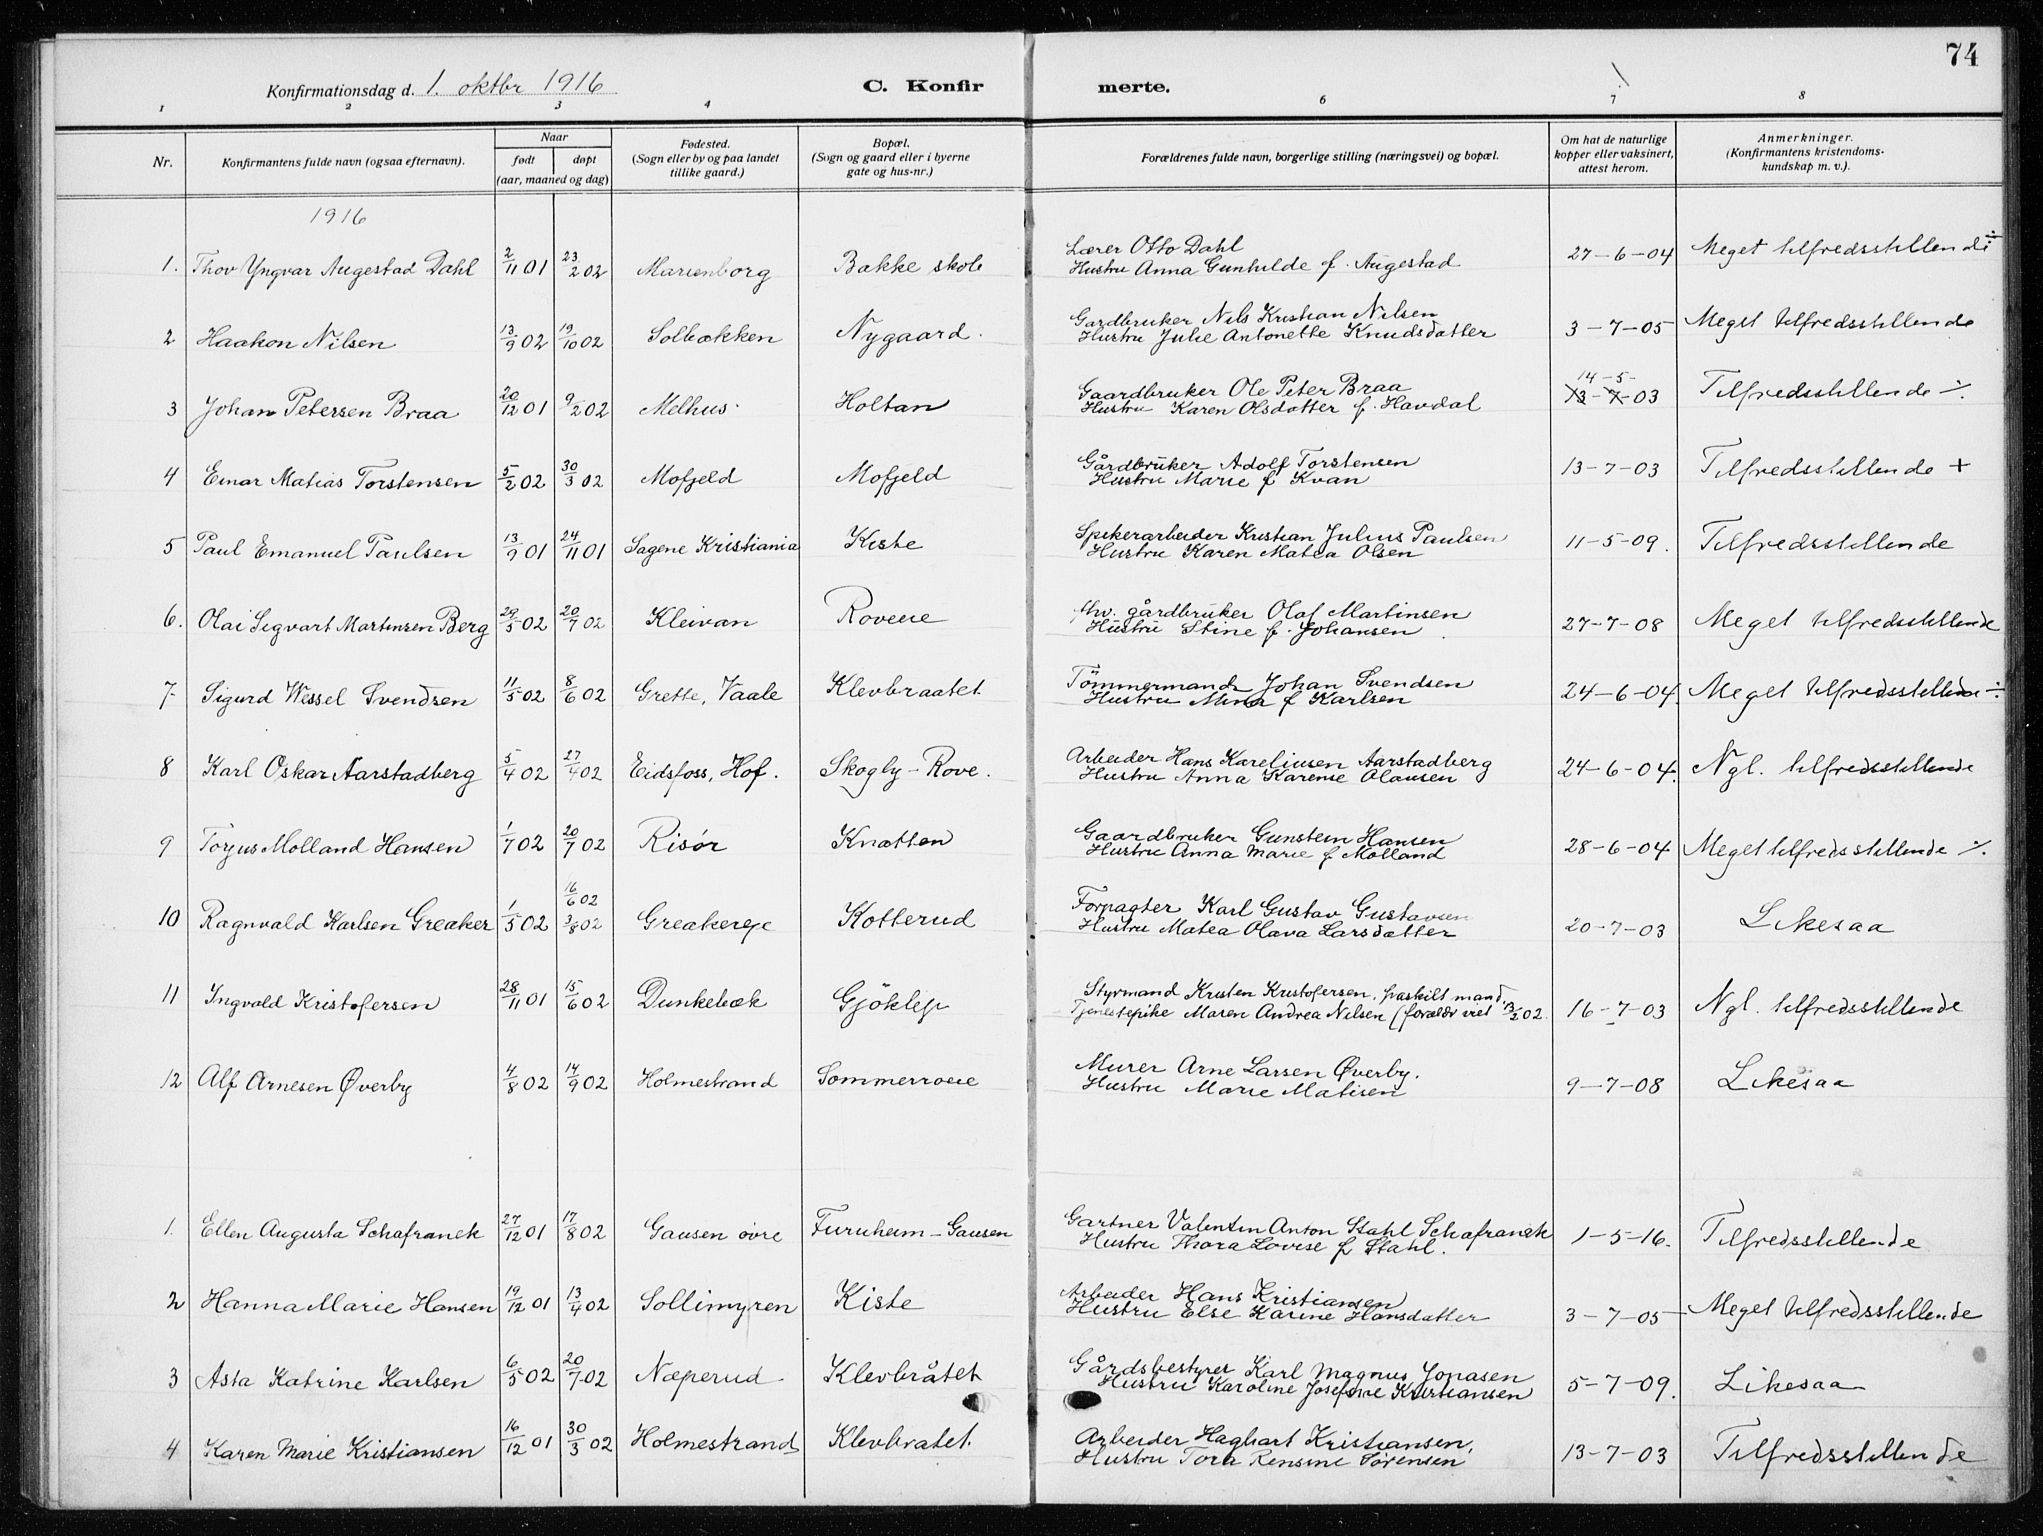 74
Konfirmationsdag d. 1. oktbr 1916 C. Konfir merte.
1 2 3 4 6 7 8
Nr. Konfirmantens fulde navn (ogsaa efternavn). Naar født døpt (aar, maaned og dag) Fødested. (Sogn eller by og paa landet tillike gaard.) Bopæl. (Sogn og gaard eller i byerne gate og hus-nr.) Forældrenes fulde navn, borgerlige stilling (næringsvei) og bopæl. Om hat de naturlige kopper eller vaksinert, attest herom. Anmerkninger. (Konfirmantens kristendoms-kundskap m. v.).
1916
1. Thov Yngvar Augestad Dahl 2/11 01 23/2 02 Marienborg Bakke skole Lærer Otto Dahl 27-6-04 Meget tilfredsstillende ÷
Hustru Anna Gunhilde f. Augestad
2 Haakon Nilsen 13/9 02 19/10 02 Solbækken Nygaard. Gardbruker Nils Kristian Nilsen 3-7-05 Meget tilfredsstillende
Hustru Julie Antonette Knudsdatter
3 Johan Petersen Braa 20/12 01 9/2 02 Melhus. Holtan Gaardbruker Ole Peter Braa 14-5- 13-7-03 Tilfredsstillende ÷
Hustru Karen Olsdatter f. Havdal
4 Einar Matias Torstensen 5/2 02 30/3 02 Mofjeld Mofjeld Gårdbruker Adolf Torstensen 13-7-03 Tilfredsstillende +
Hustru Marie f Kvan
5 Paul Emanuel Paulsen 13/9 01 24/11 01 Sagene Kristiania Kiste Spikerarbeider Kristian Julius Paulsen 11-5-09. Tilfredsstillende
Hustru Karen Matea Olsen
6. Olai Sigvart Martensen Berg 29/5 02 20/7 02 Kleivan Roveie fhv. gårdbruker Olaf Martinsen 27-7-08 Meget tilfredsstillende
Hustru Stine f. Johansen
7- Sigurd Wessel Svendsen 11/5 02 8/6 02 Grette, Vaale Klevbraatet Tömmermand Johan Svendsen 24-6-04. Meget tilfredsstillende ÷
Hustru Mina f Karlsen
8 Karl Oskar Aarstadberg 5/4 02 27/4 02 Eidsfoss, Hof. Skogly - Rove. Arbeider Hans Kareliusen Aarstadberg 24-6-04. Ngl. tilfredsstillende
Hustru Anna Karense Olausen
9 Torjus Molland Hansen 1/7 02 20/7 02 Risør Knatten Gaardbruker Gunstein Hansen 28-6-04 Meget tilfredsstillende ÷
Hustru Anna Marie f Molland
10 Ragnvald Karlsen Greaker 1/5 02 16/6 02 3/8 02 Greakereje Kotterud Forpagter Karl Gustav Gustavsen 20-7-03 Likesaa
Hustru Matea Olava Larsdatter
11 Ingvald Kristofersen 28/11 01 15/6 02 Dunkebæk Gjöklep Styrmand Kristen Kristofersen, fraskilt mand, 16-7-03 Ngl. tilfredsstillende
Tjenestepike Maren Andrea Nilsen (forældr viet 13/2 02.
12 Alf Arnesen Øverby 4/8 02 14/9 02 Holmestrand Sommerroeie Murer Arne Larsen Øverby. 9-7-08 Likesaa
Hustru Marie Matisen
1. Ellen Augusta Schafranek 27/12 01 17/8 02 Gausen övre Furuheim - Gausen Gartner Valentin Anton Stahl Schafranek 1-5-16. Tilfredsstillende
Hustru Thora Lovise f Stahl.
2 Hanna Marie Hansen 19/12 01 13/4 02 Sollimyren Kiste Arbeider Hans Kristiansen 3-7-05 Meget tilfredsstillende
Hustru Else Karine Hansdatter
3 Asta Katrine Karlsen 6/5 02 20/7 02 Næperud Klevbråtet Gårdsbestyrer Karl Magnus Jonasen 5-7-09. Likesaa
Hustru Karoline Josefine Kristiansen
4 Karen Marie Kristiansen 16/12 01 30/3 02 Holmestrand Klevbratet. Arbeider Hagbart Kristiansen, 13-7-03 Tilfredsstillende
Hustru Tora Rensine Sørensen